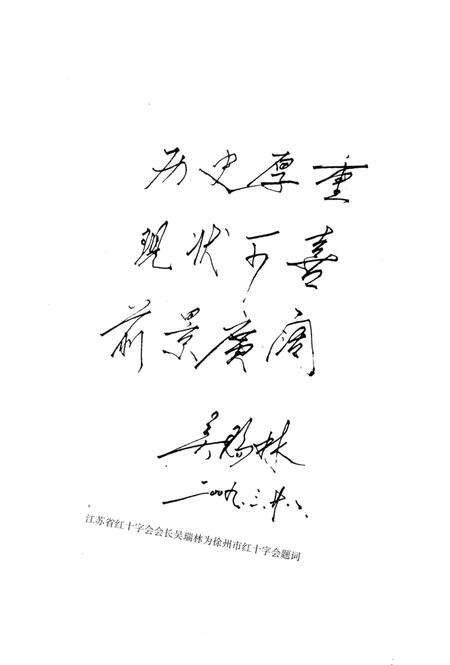 历史厚重
现状可喜
前景广阔
吴瑞林
二〇〇九.三.廿八.
江苏省红十字会会长吴瑞林为徐州市红十字会题词